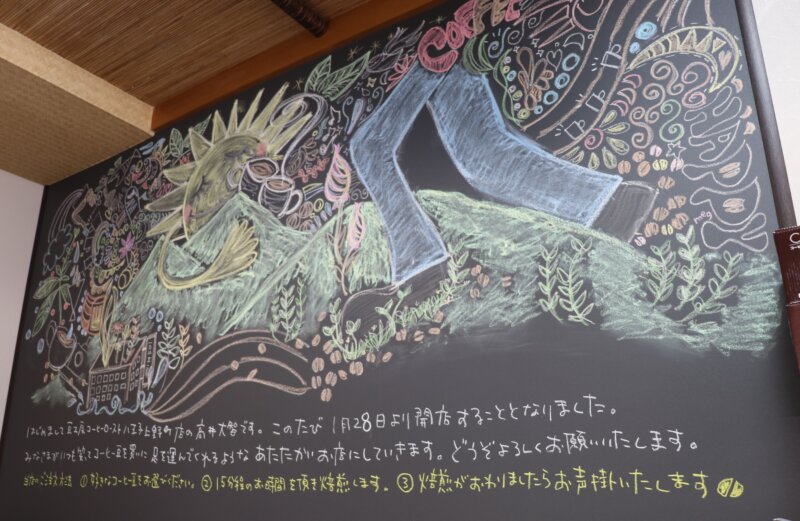 COFFEE
はじめまして豆工房コーヒーロースト八王子上野町店の高井大啓です。このたび 1月28日より開店することとなりました。
みなさまがいつも笑ってコーヒー豆を買いに足を運んでくれるような あたたかいお店にしていきます。どうぞよろしくお願いいたします。
当店のご注文方法 ①好きなコーヒー豆をお選びください。②15分程のお時間を頂き焙煎します。③焙煎がおわりましたらお声掛いたします